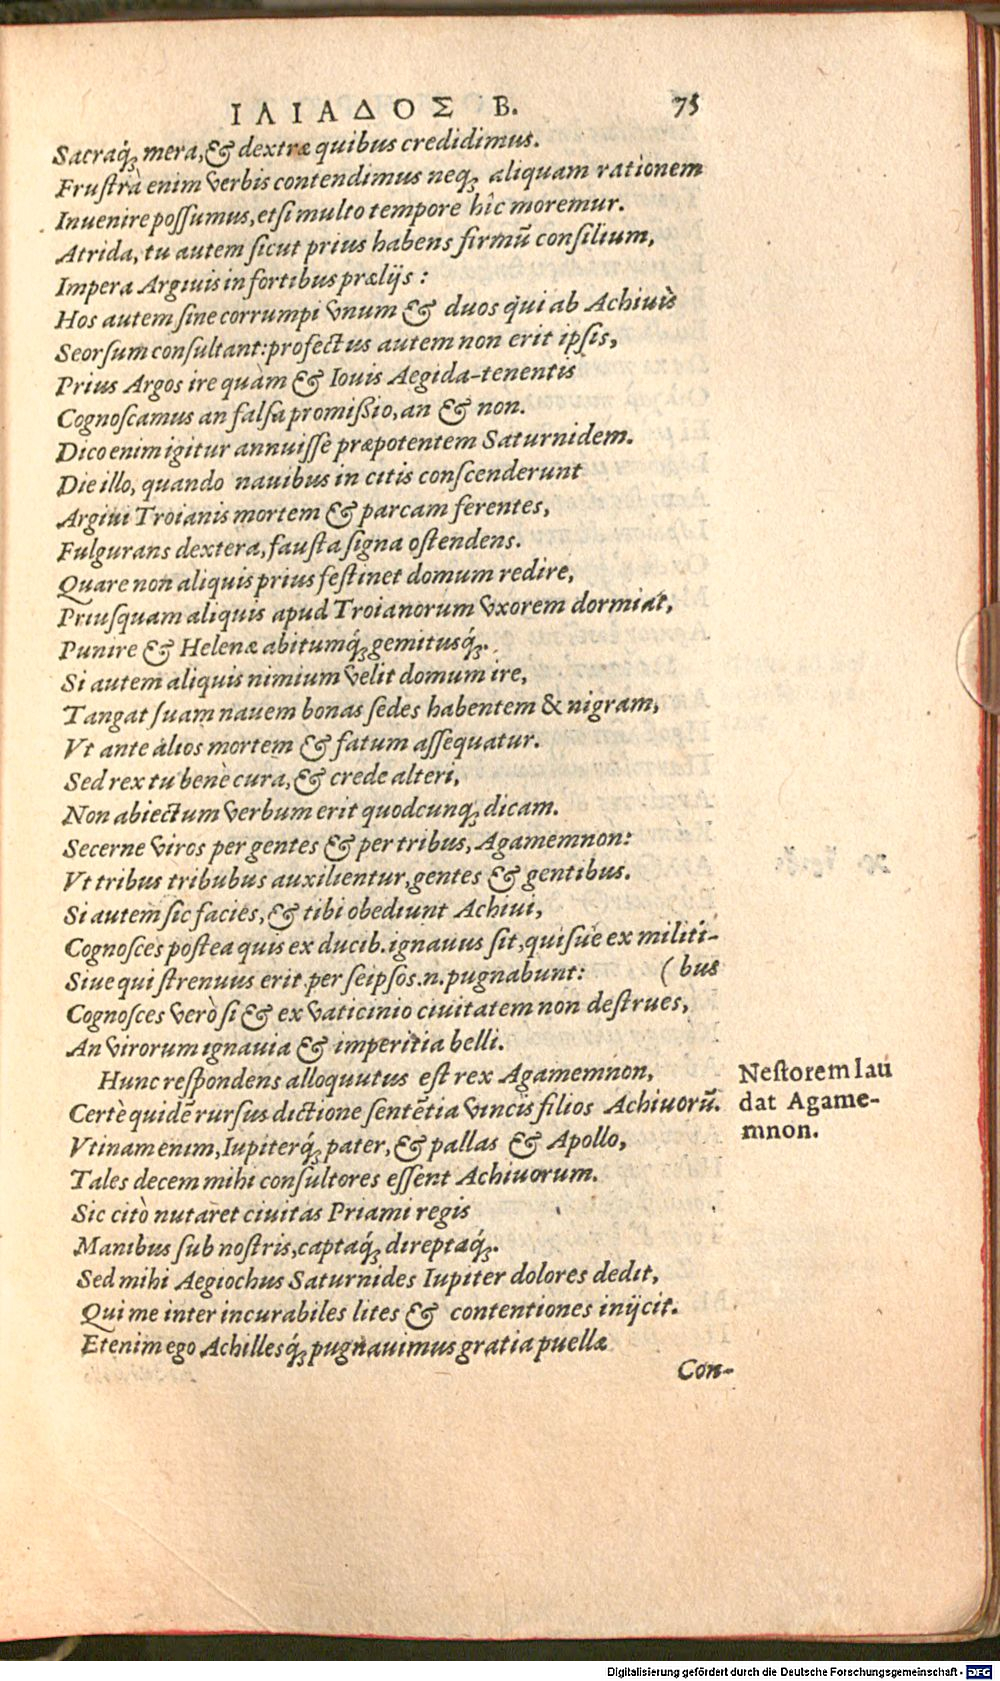 ΙΛΙΑΔΟΣ Β. 75
Sacraq́; mera, & dextræ quibus credidimus.
Frustrà enim verbis contendimus neq; aliquam rationem
Inuenire possumus, etsi multo tempore hîc moremur.
Atrida, tu autem sicut prius habens firmũ consilium,
Impera Argiuis in fortibus prælijs:
Hos autem sine corrumpi vnum & duos qui ab Achiuis
Seorsum consultant: profectus autem non erit ipsis,
Prius Argos ire quàm & Iouis Aegida-tenentis
Cognoscamus an falsa promißio, an & non.
Dico enim igitur annuisse præpotentem Saturnidem.
Die illo, quando nauibus in citis conscenderunt
Argiui Troianis mortem & parcam ferentes,
Fulgurans dextera, fausta signa ostendens.
Quare non aliquis prius festinet domum redire,
Priusquam aliquis apud Troianorum vxorem dormiat,
Punire & Helenæ abitumq́; gemitusq́;.
Si autem aliquis nimium velit domum ire,
Tangat suam nauem bonas sedes habentem & nigram,
Vt ante alios mortem & fatum assequatur.
Sed rex tu benè cura, & crede alteri,
Non abiectum verbum erit quodcunq; dicam.
Secerne viros per gentes & per tribus, Agamemnon:
Vt tribus tribubus auxilientur, gentes & gentibus.
Si autem sic facies, & tibi obediunt Achiui,
Cognosces postea quis ex ducib. ignauus sit, quisue ex militi-
Siue qui strenuus erit per seipsos .n. pugnabunt: (bus
Cognosces verò si & ex vaticinio ciuitatem non destrues,
An virorum ignauia & imperitia belli.
Hunc respondens alloquutus est rex Agamemnon,
Certè quidẽ rursus dictione sentẽtia vincis filios Achiuorũ.
Vtinam enim, Iupiterq́; pater, & pallas & Apollo,
Tales decem mihi consultores essent Achiuorum.
Sic citò nutaret ciuitas Priami regis
Manibus sub nostris, captaq́; direptaq́;.
Sed mihi Aegiochus Saturnides Iupiter dolores dedit,
Qui me inter incurabiles lites & contentiones inijcit.
Etenim ego Achillesq́; pugnauimus gratia puellæ
Con-
Nestorem lau
dat Agame-
mnon.
Digitalisierung gefördert durch die Deutsche Forschungsgemeinschaft - DFG